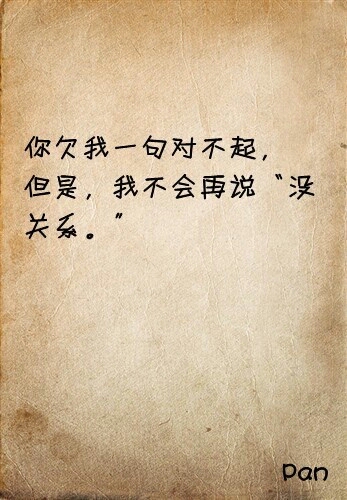 你欠我一句对不起，
但是，我不会再说〝没
关系。〞
Pan